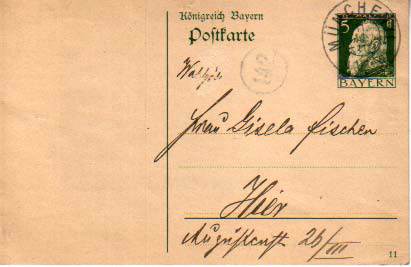 Königreich Bayern
Postkarte
MÜNCHEN
5
BAYERN
142
Frau Gisela Fischer
Hier
26/III
11